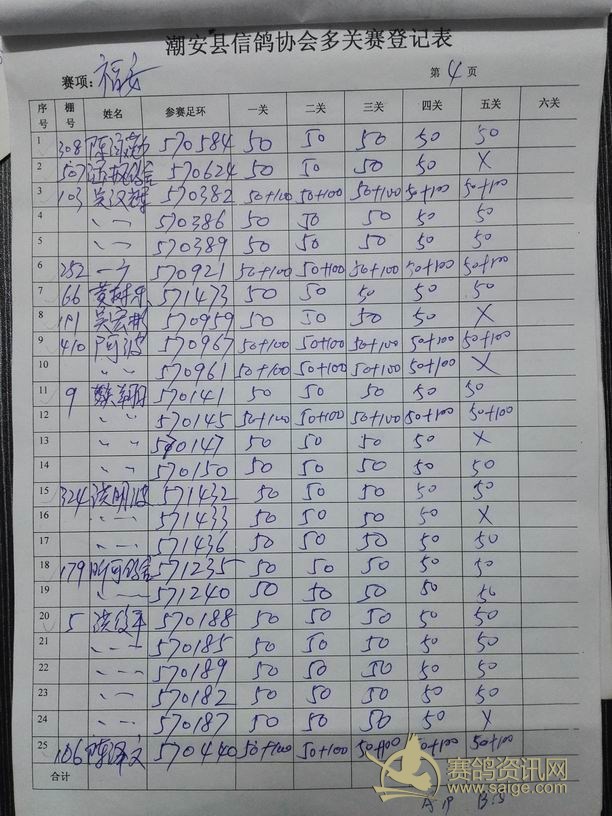 潮安县信鸽协会多关赛登记表
赛项: 福安 第 4 页
序号 棚号 姓名 参赛足环 一关 二关 三关 四关 五关 六关
1 308 570584 50 50 50 50 50
2 507 570624 50 50 50 50 X
3 103 吴汉 570382 50+100 50+100 50+100 50+100 50+100
4 570386 50 50 50 50 50
5 570389 50 50 50 50 50
6 282 一方 570921 50+100 50+100 50+100 50+100 50+100
7 66 黄树 571473 50 50 50 50 50
8 191 吴宏彬 570959 50 50 50 50 X
9 410 阿波 570967 50+100 50+100 50+100 50+100 50+100
10 570961 50+100 50+100 50+100 50+100 X
11 9 570141 50 50 50 50 50
12 570145 50+100 50+100 50+100 50+100 50+100
13 570147 50 50 50 50 X
14 570150 50 50 50 50 50
15 324 洪明波 571432 50 50 50 50 50
16 571433 50 50 50 50 X
17 571436 50 50 50 50 50
18 179 571235 50 50 50 50 50
19 571240 50 50 50 50 50
20 5 洪俊平 570188 50 50 50 50 50
21 570185 50 50 50 50 50
22 570189 50 50 50 50 50
23 570182 50 50 50 50 50
24 570187 50 50 50 50 X
25 106 陈泽文 570440 50+100 50+100 50+100 50+100 50+100
合计
赛鸽资讯网
www.saige.com